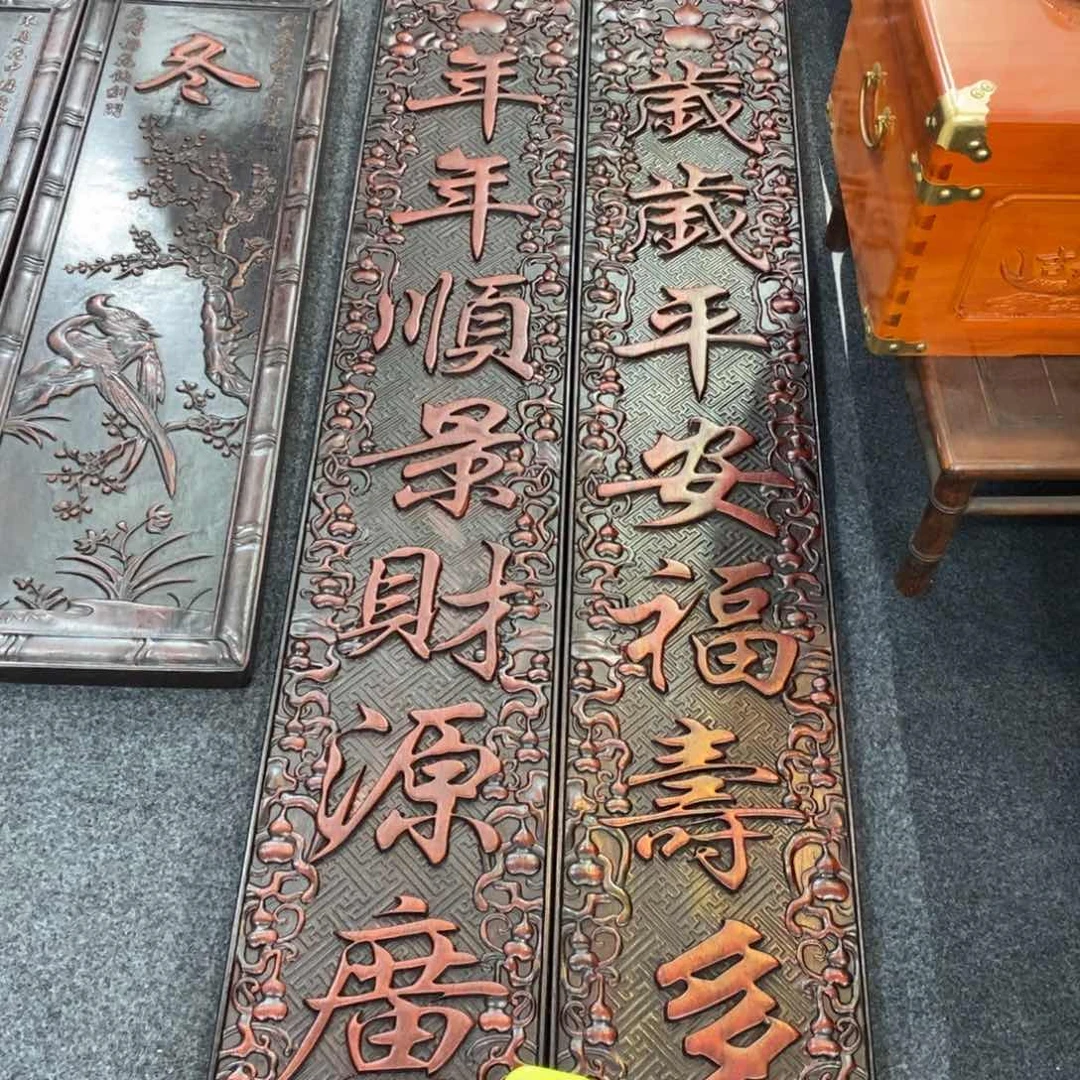 歲歲平安福壽多
年年順景財源廣
冬